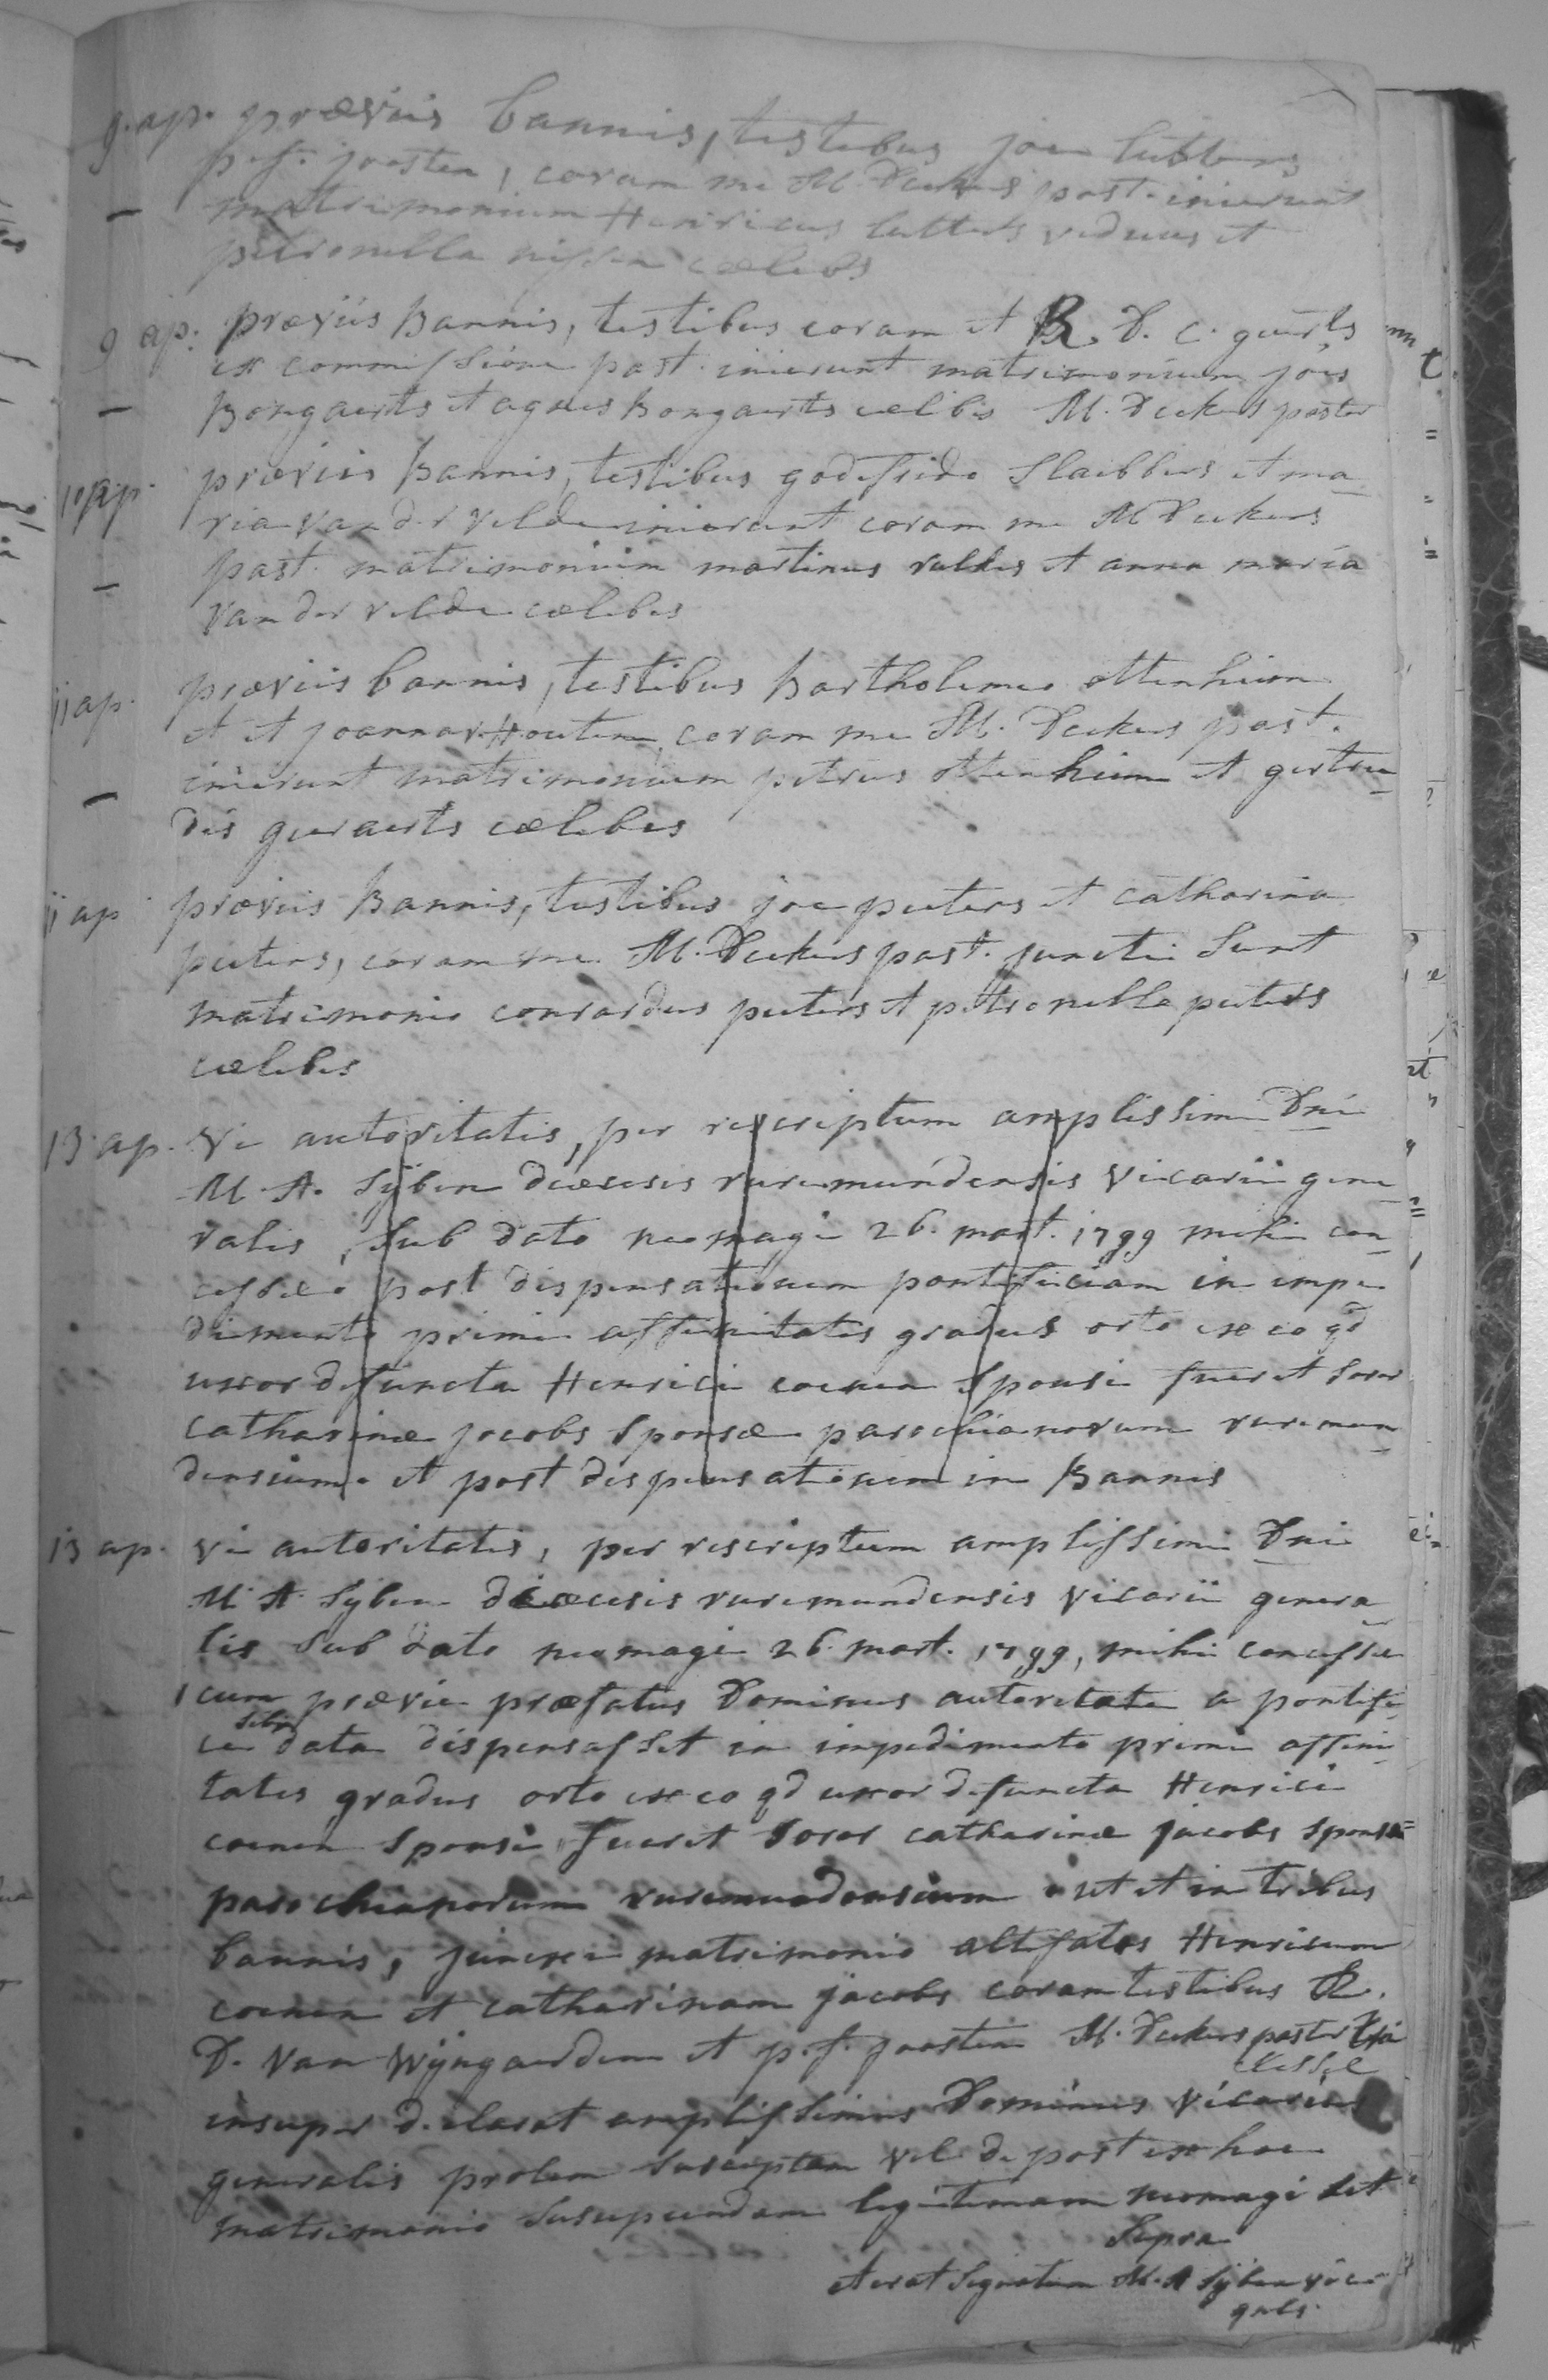 9. ap. præviis bannis, testibus joe lutters
p. f. joosten, coram me M. Deckers past. inierunt
matrimonium Henricus lutters viduus et
petronella nissen cælebs
9 ap. præviis Bannis, testibus coram et R. D. c. geurts
ex commissione past. inierunt matrimonium jois
Bongaerts et agnes Bongaerts cælibes M. Deckers pastor
10 ap. præviis Bannis, testibus godefrido slabbers et ma-
ria van der velde inierunt coram me M Deckers
past. matrimonium martinus rulkes et anna maria
van der velde cælibes
11 ap. præviis bannis, testibus Bartholomeo ottenheim
et et joanna Houten, coram me M. Deckers past.
inierunt matrimonium petrus ottenheim et gertru-
dis geraerts cælibes
11 ap præviis Bannis, testibus joe peeters et catharina
peeters, coram me M. Deckers past. juncti sunt
matrimonio conrardus peeters et petronella peeters
cælibes
13 ap. vi autoritatis, per rescriptum amplissimi Dni
M. A. Syben diœcesis ruremundensis vicarii gene-
ralis, sub dato neomagi 26. mart. 1799 mihi con-
cessæ post dispensationem pontificiam in impe
dimento primi affinitatis gradus orto ex eo qd
uxor defuncta Henrici coenen sponsi fuerit soror
catharinæ jacobs sponsæ parochianorum ruremun-
densium. et post dispensationem in Bannis
13 ap. vi autoritatis, per rescriptum amplissimi Dni
M A Syben diœcesis ruremundensis vicarii genera-
lis sub dato neomagi 26. mart. 1799, mihi concessæ
cum prævie præfatus Dominus autoritate a pontifi-
ce sibi data dispensasset in impedimento primi affini-
tatis gradus orto ex eo qd uxor defuncta Henrici
coenen sponsi fuerit soror catharinæ jacobs sponsæ
parochianorum ruremundensium ut et in tribus
bannis, junxi matrimonio altefatos Henricum
coenen et catharinam jacobs coram testibus R.
D. van Wÿngaerden et p. f. joosten M. Deckers pastor in
kessel
insuper declarat amplissimus Dominus vicarius
generalis prolem susceptam vel de post ex hoc
matrimonio suscipiendam legitimam neomagi ut
supra
et erat signatum M. A Sÿben vic.
gnls.